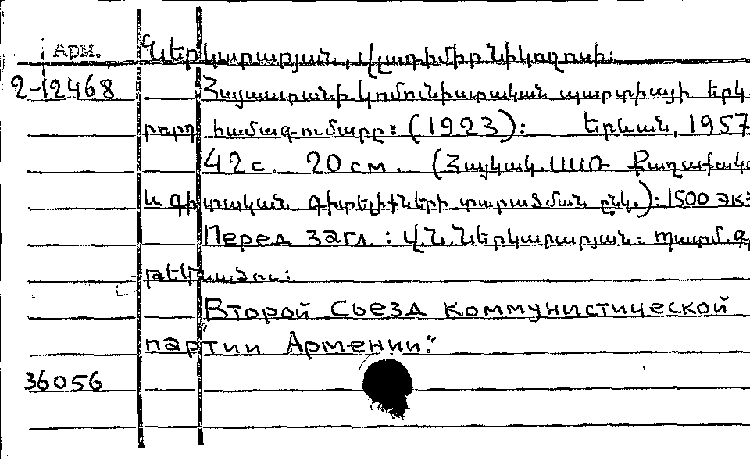 Арм. Ներկարարյան, Վլադիմիր Նիկողոսի:
2-12468 Հայաստանի կոմունիստական պարտիայի երկ
րորդ համագումարը: (1923): Երևան, 1957
42 с. 20 см. (Հայկակ. ՍՍՌ Քաղաքակ
և գիտական գիտելիքների տարածման ընկ.): 1500 экз
Перед загл.: Վ. Ն. Ներկարարյան: պատմ. գ
թեկնածու:
Второй съезд коммунистической
партии Армении."
36056